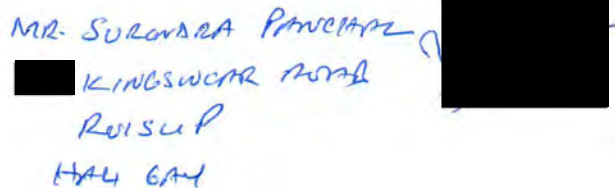 MR. SURENDRA PANCHAL
KINGSWEAR ROAD
RUISLIP
HA4 6AY